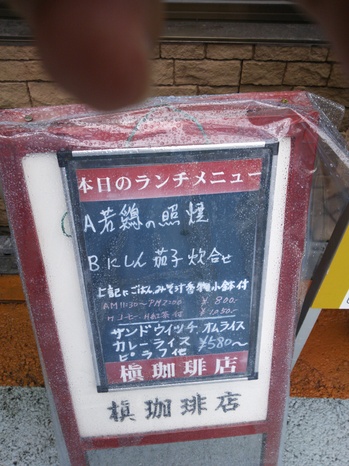 本日のランチメニュー
A 若鶏の照焼
B にしん茄子炊合せ
上記にごはん,みそ汁香物小鉢付
AM11:30〜PM2:00 ￥800-
H.コーヒー H.紅茶付 ￥1,050-
サンドウイッチ オムライス
カレーライス ￥580〜
ピラフ他
槇珈琲店
槇珈琲店